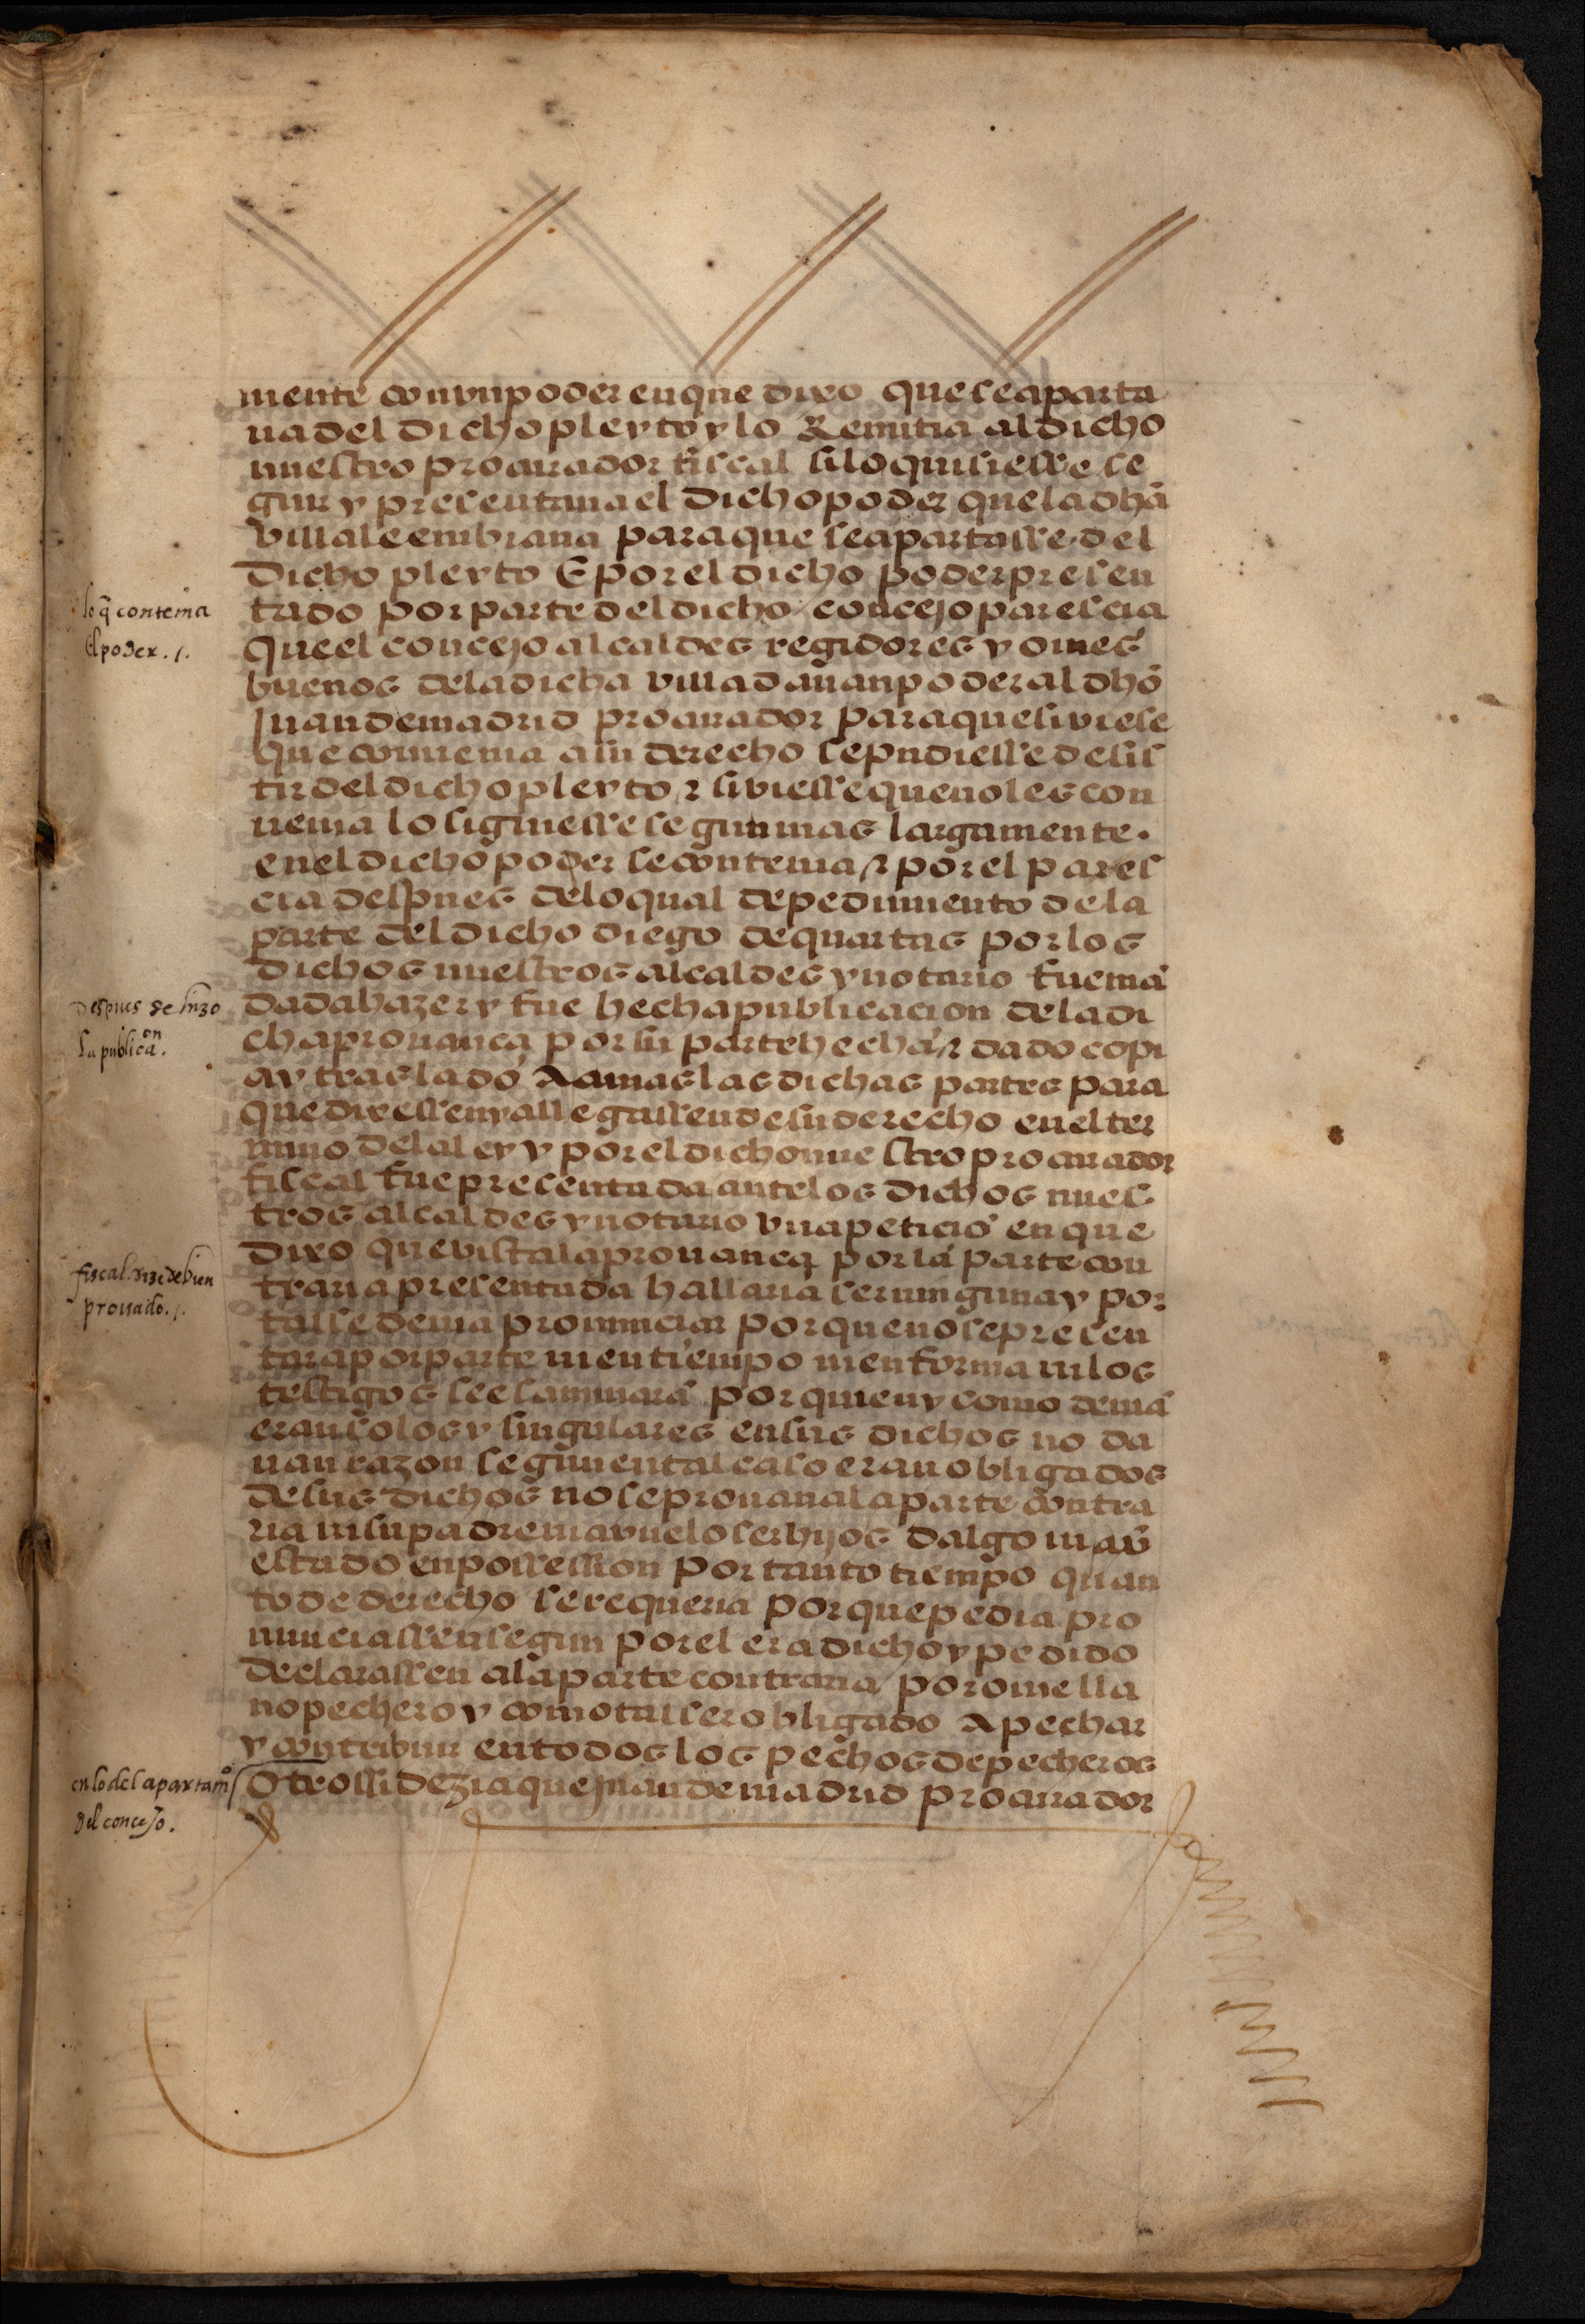 mente con vn poder en que dixo que se aparta
ua del dicho pleyto y lo Remitia al dicho
nuestro procurador fiscal si lo quisiesse se
guir y presentaua el dicho poder que la dhã
villa le embiaua para que se apartasse del
dicho pleyto E por el dicho poder presen
tado por parte del dicho concejo parescia
que el concejo alcaldes regidores y omes
buenos dela dicha villa dauan poder al dhõ
juan de madrid procurador para que si viese
que conuenia a su derecho se pudiesse desis
tir del dicho pleyto z si viesse que no les con
uenia lo siguiesse segun mas largamente.
en el dicho poder se contenia z por el pares
cia despues delo qual de pedimiento dela
parte del dicho diego de quartas por los
dichos nuestros alcaldes y notario fue mã
dada hazer y fue hecha publicacion dela di
cha prouança por su parte hecha z dado copi
a y traslado A amas las dichas partes para
que dixessen y allegassen de su derecho en el ter
mino dela ley y por el dicho nuestro procurador
fiscal fue presentada ante los dichos nues
tros alcaldes y notario vna peticiõ en que
dixo que vista la prouança por la parte con
traria presentada hallaria ser ninguna y por
tal se deuia pronunciar por que no se presen
tara por parte ni en tiempo ni en forma ni los
testigos se esaminarã por quien y como deuiã
eran solos y singulares en sus dichos no da
uan razon segun en tal caso eran obligados
de sus dichos no se prouaua la parte contra
ria ni su padre ni avuelo ser hijos dalgo ni av̄
estado en possession por tanto tiempo quan
to de derecho se requeria por que pedia pro
nunciassen segun por el era dicho y pedido
declarassen ala parte contraria por ome lla
no pechero y como tal ser obligado A pechar
y contribuir en todos los pechos de pecheros
Otrossi dezia que juan de madrid procurador
lo q̃ contenia
el poder. /.
Despues se hizo
la publicaon.
fiscal. dize de bien
prouado. /.
en lo del apartamo
del concejo.